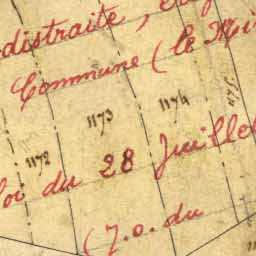 distraite,
Commune (le
1173 1174
1172
loi du 28 Juillet
(J.O. du